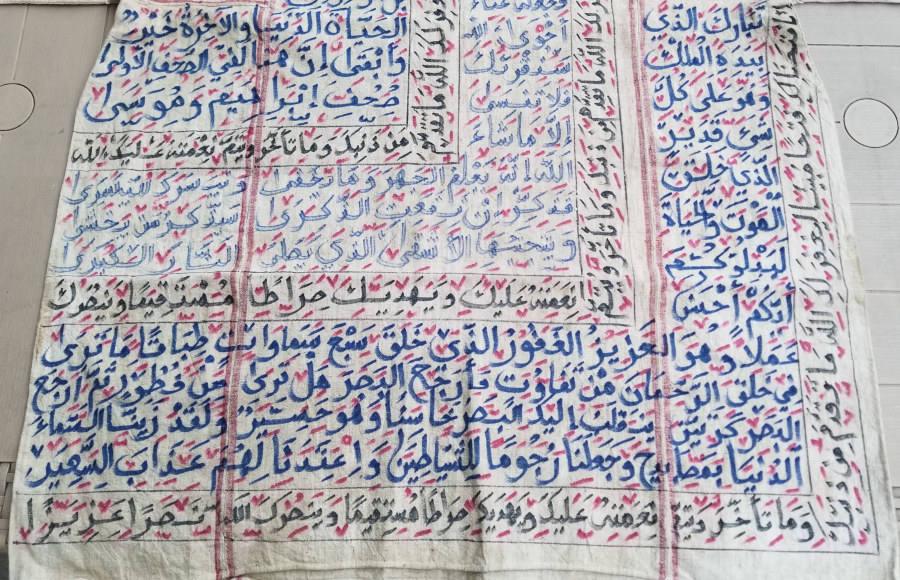 تبارك الذي
بيده الملك
وهو على كل
شيء قدير
الذي خلق
الموت والحياة
ليبلوكم
أيكم أحسن
عملا وهو العزيز الغفور الذي خلق سبع سماوات طباقا ما ترى
في خلق الرحمان من تفاوت فارجع البصر هل ترى من فطور ثم ارجع
البصر كرتين ينقلب إليك البصر خاسئا وهو حسير ولقد زينا السماء
الدنيا بمصابيح وجعلنا رجوما للشياطين واعتدنا لهم عذاب السعير
إنا فتحنا لك فتحا مبينا ليغفر لك الله ما تقدم من ذنبك
وما تأخر ويتم نعمته عليك ويهديك صراطا مستقيما وينصرك الله نصرا عزيزا
لك الله ما تقدم من ذنبك وما تأخر ويتم
نعمته عليك ويهديك صراطا مستقيما وينصرك
أحوى
سنقرئك
فلا تنسى
إلا ما شاء
الله إنه يعلم الجهر وما يخفى ونيسرك لليسرى
فذكر إن نفعت الذكرى سيذكر من يخشى
ويتجنبها الأشقى الذي يصلى النار الكبرى
لك الله ما تقدم
من ذنبك وما تأخر ويتم نعمته عليك الله
الحياة الدنيا والآخرة خير
وأبقى إن هذا لفي الصحف الأولى
صحف إبراهيم وموسى